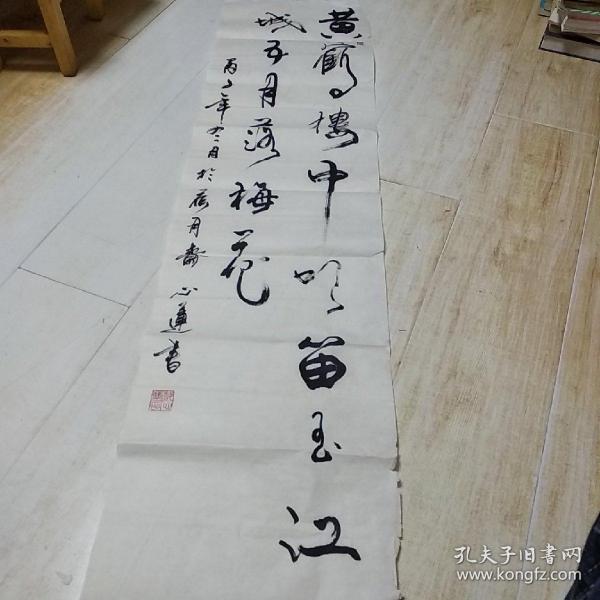 黄鹤楼中吹笛玉江
城五月落梅花
年 月於 月齋心蓮書
孔夫子旧书网
www.kongfz.com